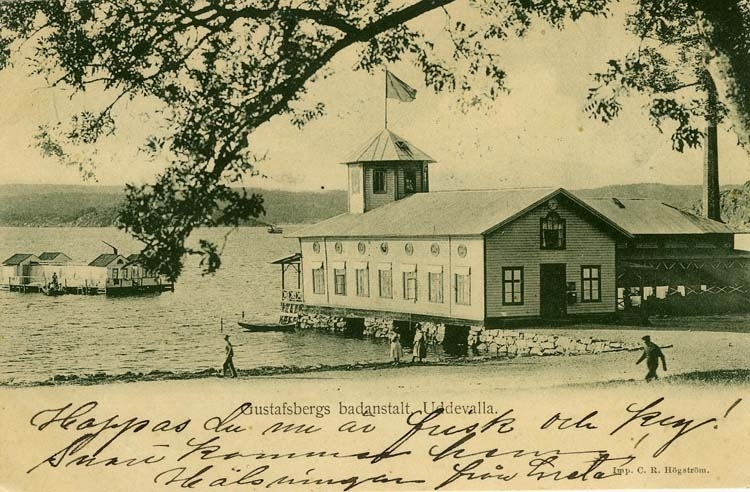 Gustafsbergs badanstalt, Uddevalla.
Hoppas du nu är frisk och kry!
Snart kommer hem!
Hälsningar från Greta
Imp. C. R. Högström.